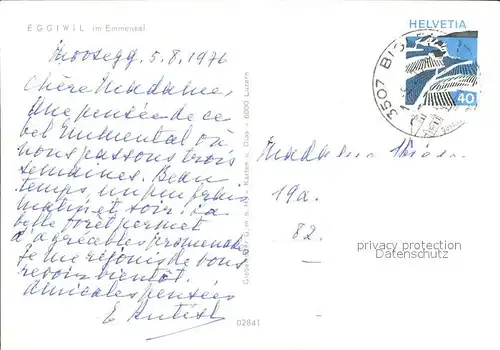 EGGIWIL im Emmental
5.8.1976
Chère Madame,
Une pensée de ce
bel Emmental où
nous passons trois
semaines. Beau
temps, un peu frais
matin et soir. La
belle forêt permet
d'agréables promenades
Je me réjouis de vous
revoir bientôt.
Amicales pensées
E.
02841
Karten u. Dias - 6000 Luzern
HELVETIA
40
3507 BIGLEN
Madame
19a.
82.
privacy protection
Datenschutz